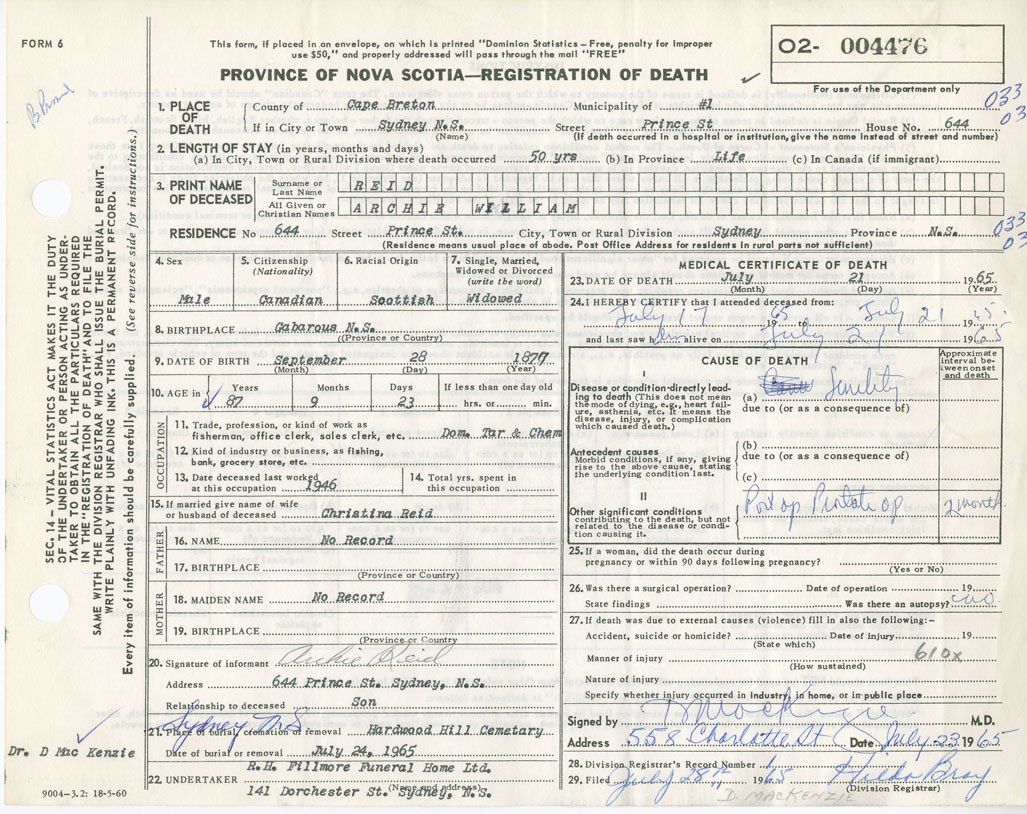 FORM 6
This form, if placed in an envelope, on which is printed "Dominion Statistics – Free, penalty for improper
use $50," and properly addressed will pass through the mail "FREE"
PROVINCE OF NOVA SCOTIA—REGISTRATION OF DEATH
02- 004476
For use of the Department only
033
03
1. PLACE OF DEATH
County of Cape Breton Municipality of #1
If in City or Town Sydney N.S. Street Prince St House No. 644
(Name) (If death occurred in a hospital or institution, give the name instead of street and number)
2. LENGTH OF STAY (in years, months and days)
(a) In City, Town or Rural Division where death occurred 50 yrs (b) In Province Life (c) In Canada (if immigrant)
3. PRINT NAME OF DECEASED
Surname or Last Name REID
All Given or Christian Names ARCHIE WILLIAM
033
03
RESIDENCE No 644 Street Prince St. City, Town or Rural Division Sydney Province N.S.
(Residence means usual place of abode. Post Office Address for residents in rural parts not sufficient)
4. Sex
Male
5. Citizenship
(Nationality)
Canadian
6. Racial Origin
Scottish
7. Single, Married,
Widowed or Divorced
(write the word)
Widowed
8. BIRTHPLACE Gabarous N.S.
(Province or Country)
9. DATE OF BIRTH September 28 1877
(Month) (Day) (Year)
10. AGE in
Years Months Days If less than one day old
87 9 23 hrs. or min.
OCCUPATION
11. Trade, profession, or kind of work as
fisherman, office clerk, sales clerk, etc. Dom. Tar & Chem
12. Kind of industry or business, as fishing,
bank, grocery store, etc.
13. Date deceased last worked
at this occupation 1946
14. Total yrs. spent in
this occupation
15. If married give name of wife
or husband of deceased Christina Reid
FATHER
16. NAME No Record
17. BIRTHPLACE
(Province or Country)
MOTHER
18. MAIDEN NAME No Record
19. BIRTHPLACE
(Province or Country
20. Signature of informant Archie Reid
Address 644 Prince St. Sydney, N.S.
Relationship to deceased Son
Sydney N.S.
21. Place of burial, cremation or removal Hardwood Hill Cemetary
Date of burial or removal July 24, 1965
22. UNDERTAKER R.H. Fillmore Funeral Home Ltd.
(Name and address)
141 Dorchester St. Sydney, N.S.
MEDICAL CERTIFICATE OF DEATH
23. DATE OF DEATH July 21 1965.
(Month) (Day) (Year)
24. I HEREBY CERTIFY that I attended deceased from:
July 17 1965 July 21 1965
and last saw him alive on July 21 1965
CAUSE OF DEATH
Approximate
interval be-
tween onset
and death
I
Disease or condition directly lead-
ing to death (This does not
mean the mode of dying, e.g., heart fail-
ure, asthenia, etc. It means the
disease, injury, or complication
which caused death.)
(a) Senility
due to (or as a consequence of)
Antecedent causes
Morbid conditions, if any, giving
rise to the above cause, stating
the underlying condition last.
(b)
due to (or as a consequence of)
(c)
II
Other significant conditions
contributing to the death, but not
related to the disease or condi-
tion causing it.
Post op Prostate op 2 month
25. If a woman, did the death occur during
pregnancy or within 90 days following pregnancy?
(Yes or No)
26. Was there a surgical operation? Date of operation 19
State findings Was there an autopsy? no
27. If death was due to external causes (violence) fill in also the following:-
Accident, suicide or homicide? Date of injury 19
(State which)
Manner of injury 610x
(How sustained)
Nature of injury
Specify whether injury occurred in industry, in home, or in public place
Signed by D MacKenzie M.D.
Address 558 Charlotte St Date July 23 1965
28. Division Registrar's Record Number
29. Filed July 28th 1965 Hilda Bray
(Division Registrar)
D. MACKENZIE
SEC. 14 – VITAL STATISTICS ACT MAKES IT THE DUTY
OF THE UNDERTAKER OR PERSON ACTING AS UNDER-
TAKER TO OBTAIN ALL THE PARTICULARS REQUIRED
IN THE "REGISTRATION OF DEATH" AND TO FILE THE
SAME WITH THE DIVISION REGISTRAR WHO SHALL ISSUE THE BURIAL PERMIT.
WRITE PLAINLY WITH UNFADING INK. THIS IS A PERMANENT RECORD.
Every item of information should be carefully supplied. (See reverse side for instructions.)
Dr. D Mac Kenzie
9004-3.2: 18-5-60